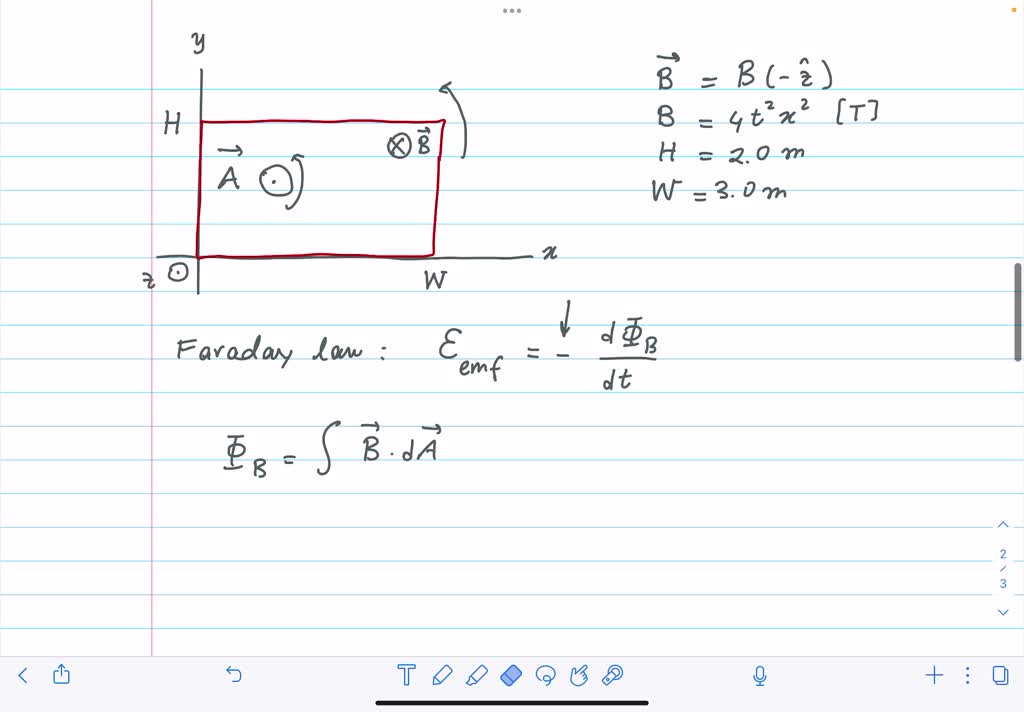 y
H
⊗ B⃗
A⃗ ⊙
z ⊙
x
W
B⃗ = B(-ẑ)
B = 4t²x² [T]
H = 2.0 m
W = 3.0 m
Faraday law : Ɛemf = - dΦB/dt
ΦB = ∫ B⃗ · dA⃗
2
/
3
T